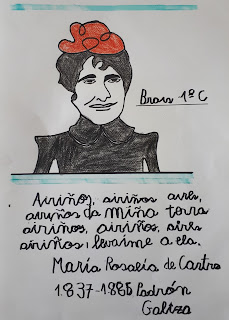 Brais 1º C
Airiños, airiños aires,
airiños da miña terra
airiños, airiños, aires
airiños, levaime a ela.
María Rosalía de Castro
1.837-1885 Padrón
Galiza